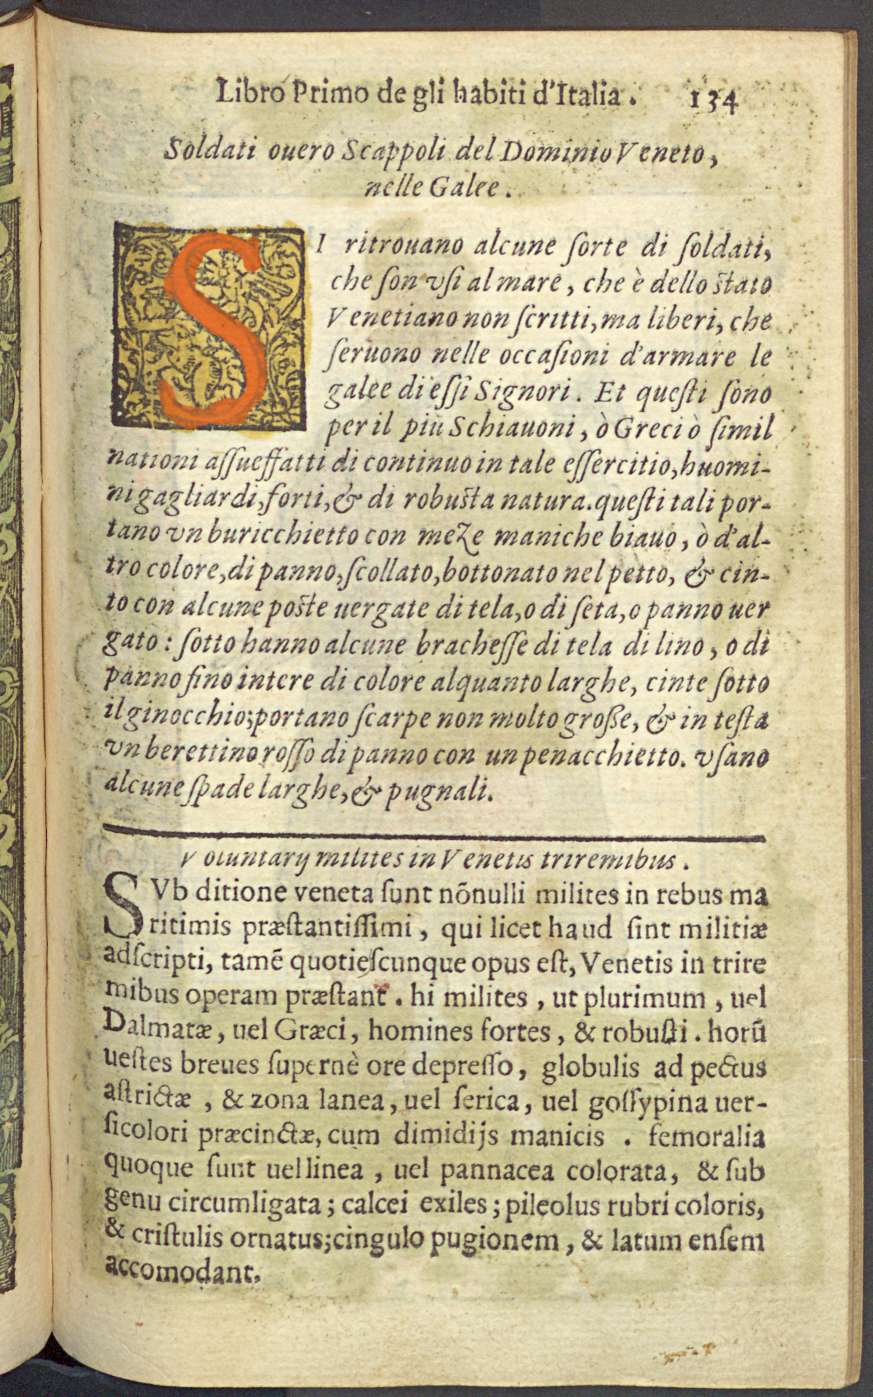 Libro Primo de gli habiti d'Italia. 134
Soldati ouero Scappoli del Dominio Veneto,
nelle Galee.
SI ritrouano alcune ſorte di ſoldati,
che ſon vſi al mare, che è dello ſtato
Venetiano non ſcritti, ma liberi, che
ſeruono nelle occaſioni d'armare le
galee di eſſi Signori. Et queſti ſono
per il più Schiauoni, ò Greci ò ſimil
nationi aſſueffatti di continuo in tale eſſercitio, huomi-
ni gagliardi, forti, & di robuſta natura. queſti tali por-
tano vn buricchietto con meze maniche biauo, ò d'al-
tro colore, di panno, ſcollato, bottonato nel petto, & cin-
to con alcune poſte uergate di tela, o di ſeta, o panno uer
gato: ſotto hanno alcune bracheſſe di tela di lino, o di
panno fino intere di colore alquanto larghe, cinte ſotto
il ginocchio; portano ſcarpe non molto groſſe, & in teſta
vn berettino roſſo di panno con un penacchietto. vſano
alcune ſpade larghe, & pugnali.
Voluntarij milites in Venetis triremibus.
SVb ditione veneta ſunt nōnulli milites in rebus ma
ritimis præſtantiſſimi, qui licet haud ſint militiæ
adſcripti, tamē quotieſcunque opus eſt, Venetis in trire
mibus operam præſtant. hi milites, ut plurimum, uel
Dalmatæ, uel Græci, homines fortes, & robuſti. horū
ueſtes breues ſupernè ore depreſſo, globulis ad pectus
aſtrictæ, & zona lanea, uel ſerica, uel goſſypina uer-
ſicolori præcinctæ, cum dimidijs manicis . femoralia
quoque ſunt uel linea, uel pannacea colorata, & ſub
genu circumligata; calcei exiles; pileolus rubri coloris,
& criſtulis ornatus; cingulo pugionem, & latum enſem
accomodant.